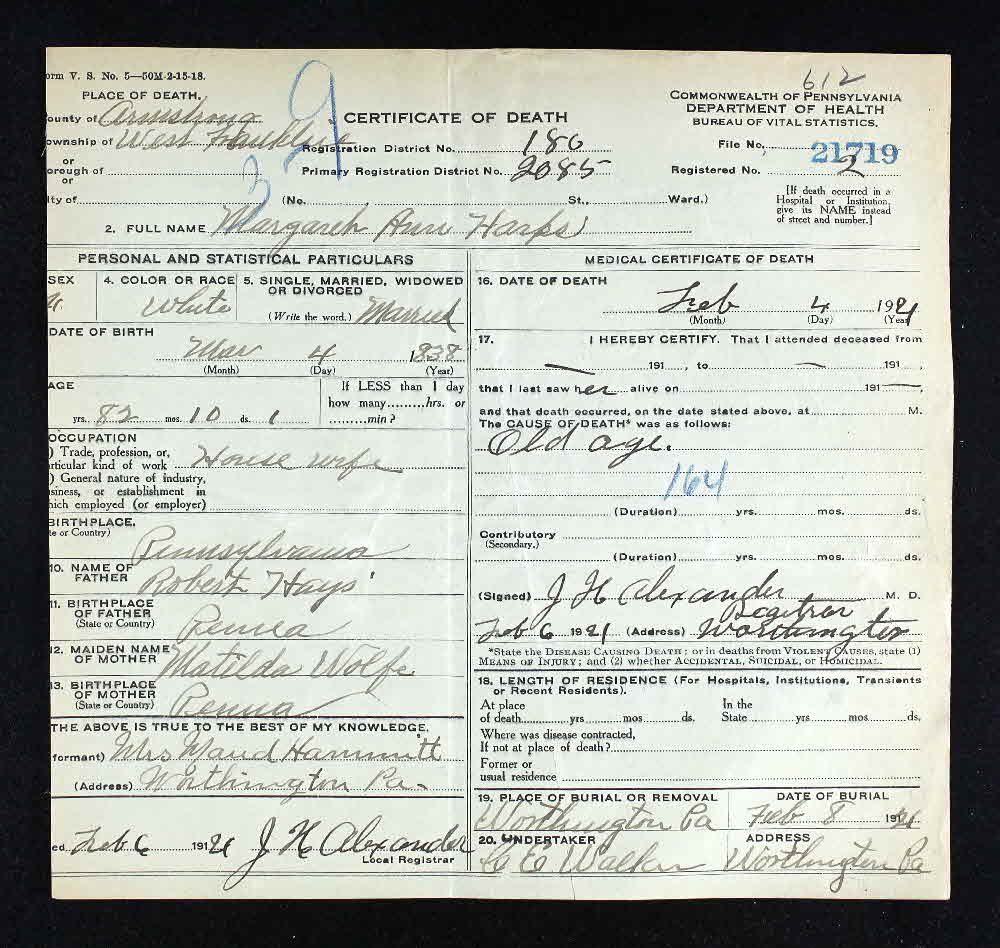 orm V. S. No. 5—50M-2-15-18.
612
PLACE OF DEATH.
ounty of Armstrong
ownship of West Franklin
or
orough of
or
ity of
39
CERTIFICATE OF DEATH
Registration District No. 186
Primary Registration District No. 2085
(No. St., Ward.)
COMMONWEALTH OF PENNSYLVANIA
DEPARTMENT OF HEALTH
BUREAU OF VITAL STATISTICS.
File No. 21719
Registered No. 2
[If death occurred in a
Hospital or Institution,
give its NAME instead
of street and number.]
2. FULL NAME Ann
PERSONAL AND STATISTICAL PARTICULARS
SEX
4. COLOR OR RACE
White
5. SINGLE, MARRIED, WIDOWED
OR DIVORCED
(Write the word.) Married
DATE OF BIRTH
Mar 4 1838
(Month) (Day) (Year)
AGE
yrs. 82 mos. 10 ds. 1
If LESS than 1 day
how many hrs. or
min?
OCCUPATION
) Trade, profession, or,
articular kind of work House wife
) General nature of industry,
siness, or establishment in
hich employed (or employer)
BIRTHPLACE.
te or Country)
Pennsylvania
10. NAME OF
FATHER
Robert Hays
11. BIRTHPLACE
OF FATHER
(State or Country)
Penna
12. MAIDEN NAME
OF MOTHER
Matilda Wolfe
13. BIRTHPLACE
OF MOTHER
(State or Country)
Penna
THE ABOVE IS TRUE TO THE BEST OF MY KNOWLEDGE.
formant) Mrs Maud Hammitt
(Address) Worthington Pa-
ed Feb 6 1921 J H Alexander
Local Registrar
MEDICAL CERTIFICATE OF DEATH
16. DATE OF DEATH
Feb 4 1921
(Month) (Day) (Year)
17. I HEREBY CERTIFY. That I attended deceased from
— 191 , to — 191 ,
that I last saw her alive on 191 — ,
and that death occurred, on the date stated above, at M.
The CAUSE OF DEATH* was as follows:
Old age.
164
(Duration) yrs. mos. ds.
Contributory
(Secondary.)
(Duration) yrs. mos. ds.
(Signed) J H Alexander M. D.
Registrar
Feb 6 1921 (Address) Worthington
*State the DISEASE CAUSING DEATH; or in deaths from VIOLENT CAUSES, state (1)
MEANS OF INJURY; and (2) whether ACCIDENTAL, SUICIDAL, or HOMICIDAL.
18. LENGTH OF RESIDENCE (For Hospitals, Institutions, Transients
or Recent Residents).
At place
of death yrs mos ds.
In the
State yrs mos ds.
Where was disease contracted,
If not at place of death?
Former or
usual residence
19. PLACE OF BURIAL OR REMOVAL
Worthington Pa
DATE OF BURIAL
Feb 8 1921
20. UNDERTAKER
C E Walker
ADDRESS
Worthington Pa